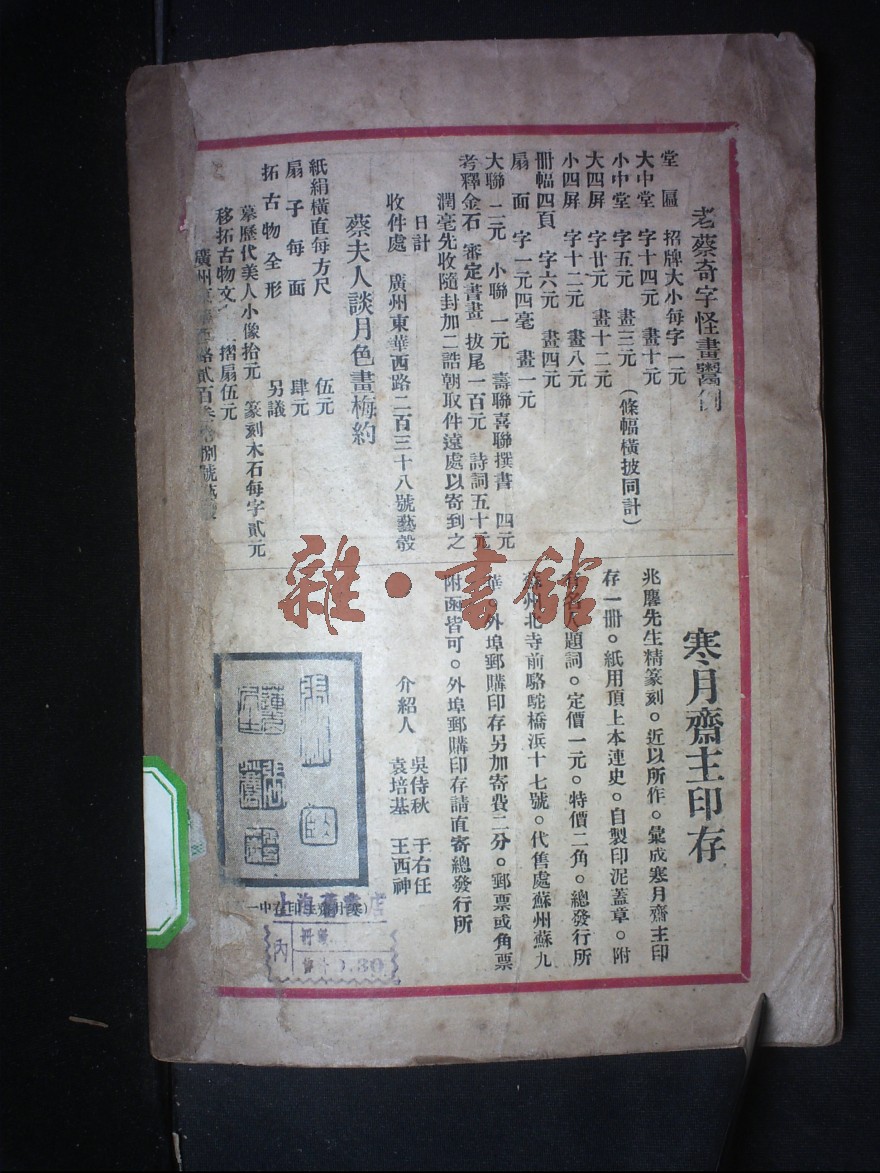 老蔡奇字怪畫鬻例
堂匾　招牌大小每字一元
大中堂　字十四元　畫十元
小中堂　字五元　畫三元（條幅橫披同計）
大四屏　字廿元　畫十二元
小四屏　字十二元　畫八元
冊幅四頁　字六元　畫四元
扇面　字一元四毫　畫一元
大聯　二元　小聯　一元　壽聯喜聯撰書　四元
考釋金石　審定書畫　拔尾一百元　詩詞五十元
潤毫先收隨封加二誥朝取件遠處以寄到之
日計
收件處　廣州東華西路二百三十八號藝彀
蔡夫人談月色畫梅約
紙絹橫直每方尺　伍元
扇子每面　肆元
拓古物全形　另議
摹歷代美人小像拾元　篆刻木石每字貳元
移拓古物文　摺扇伍元
廣州　路貳百　捌號藝
寒月齋主印存
兆麐先生精篆刻。近以所作。彙成寒月齋主印
存一冊。紙用頂上本連史。自製印泥蓋章。附
名人題詞。定價一元。特價二角。總發行所
蘇州北寺前駱駝橋浜十七號。代售處蘇州蘇九
華。外埠郵購印存另加寄費二分。郵票或角票
附函皆可。外埠郵購印存請直寄總發行所
介紹人　吳待秋　于右任
袁培基　王西神
雜·書館
上海舊書店
內
冊數
售價0.80